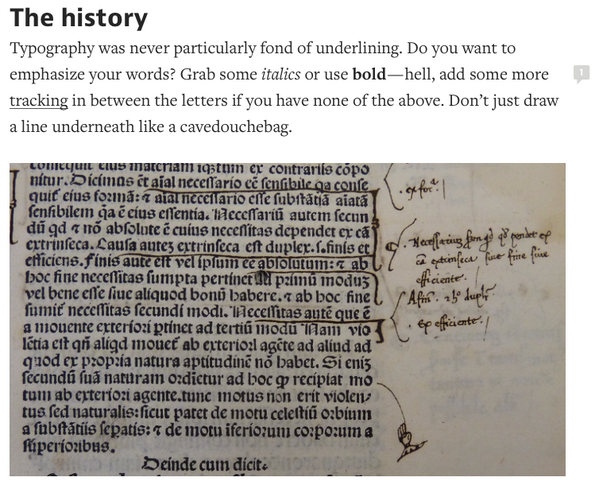 The history
Typography was never particularly fond of underlining. Do you want to
emphasize your words? Grab some italics or use bold—hell, add some more
tracking in between the letters if you have none of the above. Don't just draw
a line underneath like a cavedouchebag.
1
eius materiam ex contrariis cōpo
nitur. Dicimus ēt aīal necessario eē sensibile qa conse
quit eius formā: ⁊ aīal necessario esse substātiā aīatā
sensibilem qa ē eius essentia. Necessariū autem secun
dū qd ⁊ nō absolute ē cuius necessitas dependet ex cā
extrinseca. Causa autez extrinseca est duplex. s. finis et
efficiens. finis aute est vel ipsum eē absolutum: ⁊ ab
hoc fine necessitas sumpta pertinet primū moduz
vel bene esse siue aliquod bonū habere. ⁊ ab hoc fine
sumit̄ necessitas secundi modi. Necessitas autē que ē
a mouente exteriori ptinet ad tertiū modū Nam vio
lētia est qn̄ aliqd mouet̄ ab exteriori agēte ad aliud ad
quod ex propria natura aptitudinē nō habet. Si eniz
secundū suā naturam ordietur ad hoc ꝙ recipiat mo
tum ab exteriori agente. tunc motus non erit violen
tus sed naturalis: sicut patet de motu celestiū orbium
a substātiis sepatis: ⁊ de motu īferiorum corporum a
suꝑioribus.
Deinde cum dicit.
efficiente.
Ex efficiente.